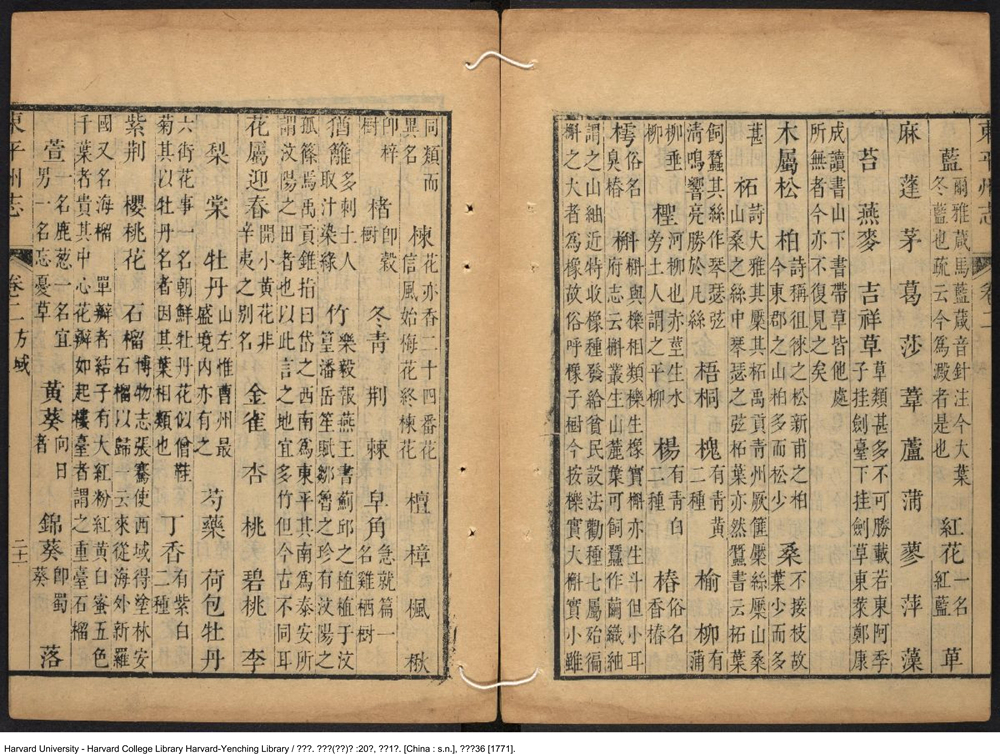 東平州志 卷二
藍 爾雅葴馬藍葴音針注今大葉冬藍也疏云今為澱者是也 紅花 一名紅藍 草
麻 蓬 茅 葛 莎 葦 蘆 蒲 蓼 萍 藻
苔 燕麥 吉祥草 草類甚多不可勝載若東阿季子挂劍臺下挂劍草東萊鄭康
成讀書山下書帶草皆他處所無者今亦不復見之矣
木屬松 柏 詩稱徂徠之松新甫之柏今東郡之山柏多而松少 桑 不接枝故葉少而多
葚 柘 詩大雅其檿其柘禹貢青州厥篚檿絲檿山桑山桑之絲中琴瑟之弦柘葉亦然蠶書云柘葉
飼蠶其絲作琴瑟弦清鳴響亮勝於凡絲 梧桐 槐 有青黃二種 榆 柳 有蒲
柳垂柳 檉 河柳也亦莖生水旁土人謂之平柳 楊 有青白二種 椿 俗名香椿
樗 俗名臭椿 槲 槲與櫟相類櫟生檪實槲亦生斗但小耳府志云槲叢生山麓葉可飼蠶作繭織紬
謂之山紬近特收椽種發給貧民設法勸種七屬始徧槲之大者為橡故俗呼棵子樹今按櫟實大槲實小雖
同類而異名 楝 花亦香二十四番花信風始梅花終楝花 檀 樟 楓 楸
即梓樹 楮 即穀樹 冬青 荊 棘 皁角 急就篇一名雞栖樹
猶雛多刺土人取汁染綠 竹 樂毅報燕王書薊邱之植植于汶篁潘岳笙賦鄒魯之珍有汶陽之
孤篠焉禹貢錐指曰岱之西南為東平其南為泰安所謂汶陽之田者也以此言之地宜多竹但今古不同耳
花屬迎春 開小黃花非辛夷之別名 金雀 杏 桃 碧桃 李
梨 棠 牡丹 山左惟曹州最盛境內亦有之 芍藥 荷包牡丹
六街花事一名朝鮮牡丹花似僧鞋菊其以牡丹名者因其葉相類也 丁香 有紫白二種
紫荆 櫻桃花 石榴 博物志張騫使西域得塗林安石榴以歸一云來從海外新羅
國又名海榴 單瓣者結子有大紅粉紅黃白蜜五色千葉者貴其中心花瓣如起樓臺者謂之重臺石榴
萱 一名鹿葱一名宜男一名忘憂草 黃葵 向日者 錦葵 即蜀葵 落
東平州志 卷二 方域 二十一
Harvard University - Harvard College Library Harvard-Yenching Library / ???. ???(??)? :20?, ??1?. [China : s.n.], ???36 [1771].